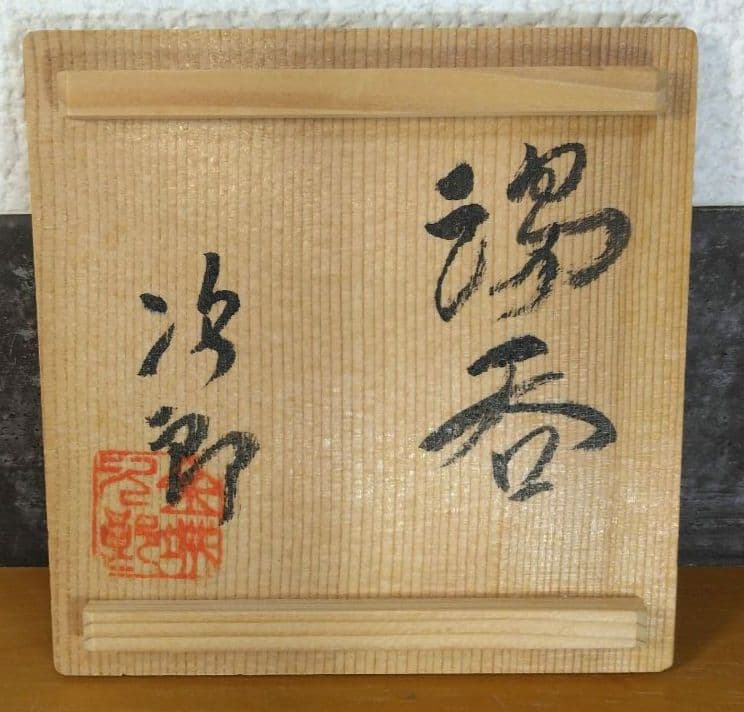 湯呑
次郎